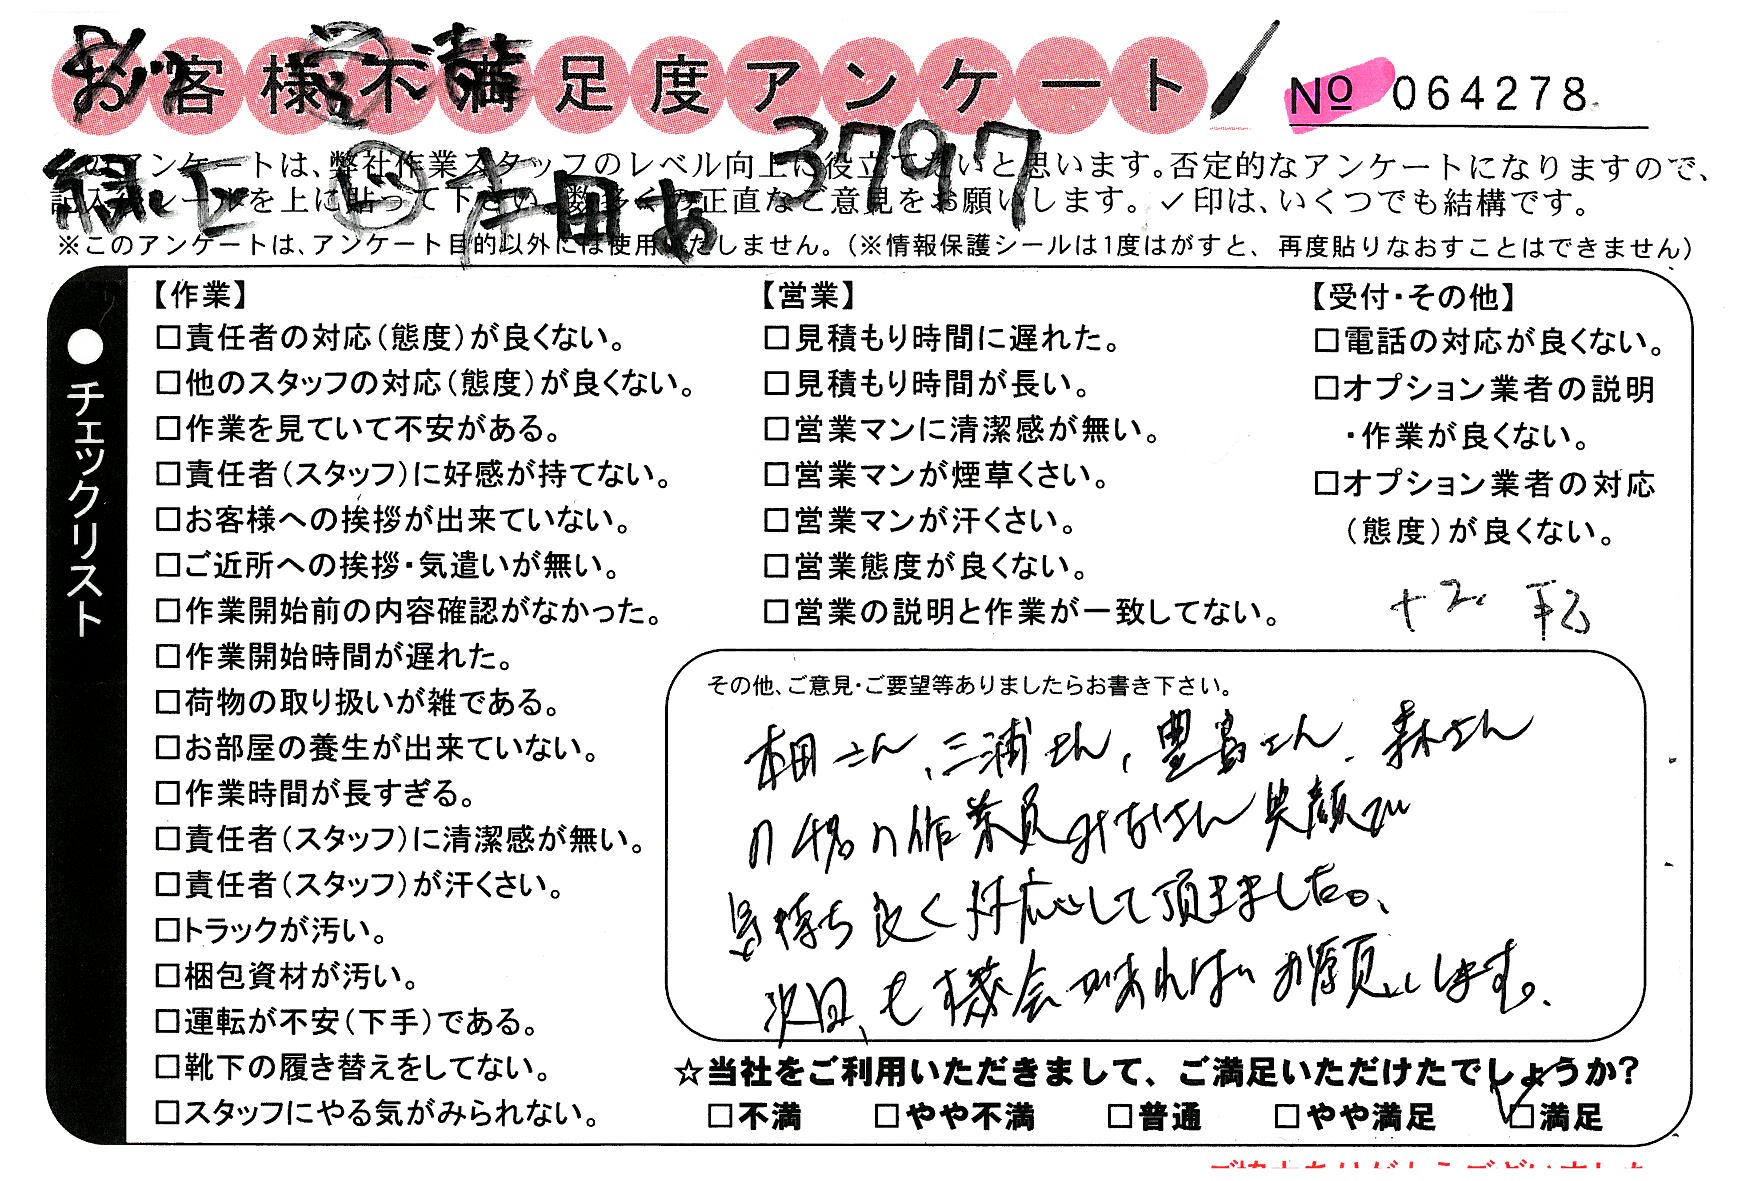 お客様不満足度アンケート
No 064278
3797
このアンケートは、弊社作業スタッフのレベル向上に役立てたいと思います。否定的なアンケートになりますので、
記入後シールを上に貼って下さい。数多くの正直なご意見をお願いします。✓印は、いくつでも結構です。
※このアンケートは、アンケート目的以外には使用いたしません。（※情報保護シールは1度はがすと、再度貼りなおすことはできません）
●チェックリスト
【作業】
□責任者の対応（態度）が良くない。
□他のスタッフの対応（態度）が良くない。
□作業を見ていて不安がある。
□責任者（スタッフ）に好感が持てない。
□お客様への挨拶が出来ていない。
□ご近所への挨拶・気遣いが無い。
□作業開始前の内容確認がなかった。
□作業開始時間が遅れた。
□荷物の取り扱いが雑である。
□お部屋の養生が出来ていない。
□作業時間が長すぎる。
□責任者（スタッフ）に清潔感が無い。
□責任者（スタッフ）が汗くさい。
□トラックが汚い。
□梱包資材が汚い。
□運転が不安（下手）である。
□靴下の履き替えをしてない。
□スタッフにやる気がみられない。
【営業】
□見積もり時間に遅れた。
□見積もり時間が長い。
□営業マンに清潔感が無い。
□営業マンが煙草くさい。
□営業マンが汗くさい。
□営業態度が良くない。
□営業の説明と作業が一致してない。
【受付・その他】
□電話の対応が良くない。
□オプション業者の説明
・作業が良くない。
□オプション業者の対応
（態度）が良くない。
その他、ご意見・ご要望等ありましたらお書き下さい。
本田さん、三浦さん、豊島さん、森さん
の4名の作業員みなさん笑顔で
気持ち良く対応して頂きました。
次回も機会があればお願いします。
☆当社をご利用いただきまして、ご満足いただけたでしょうか?
□不満 □やや不満 □普通 □やや満足 □満足